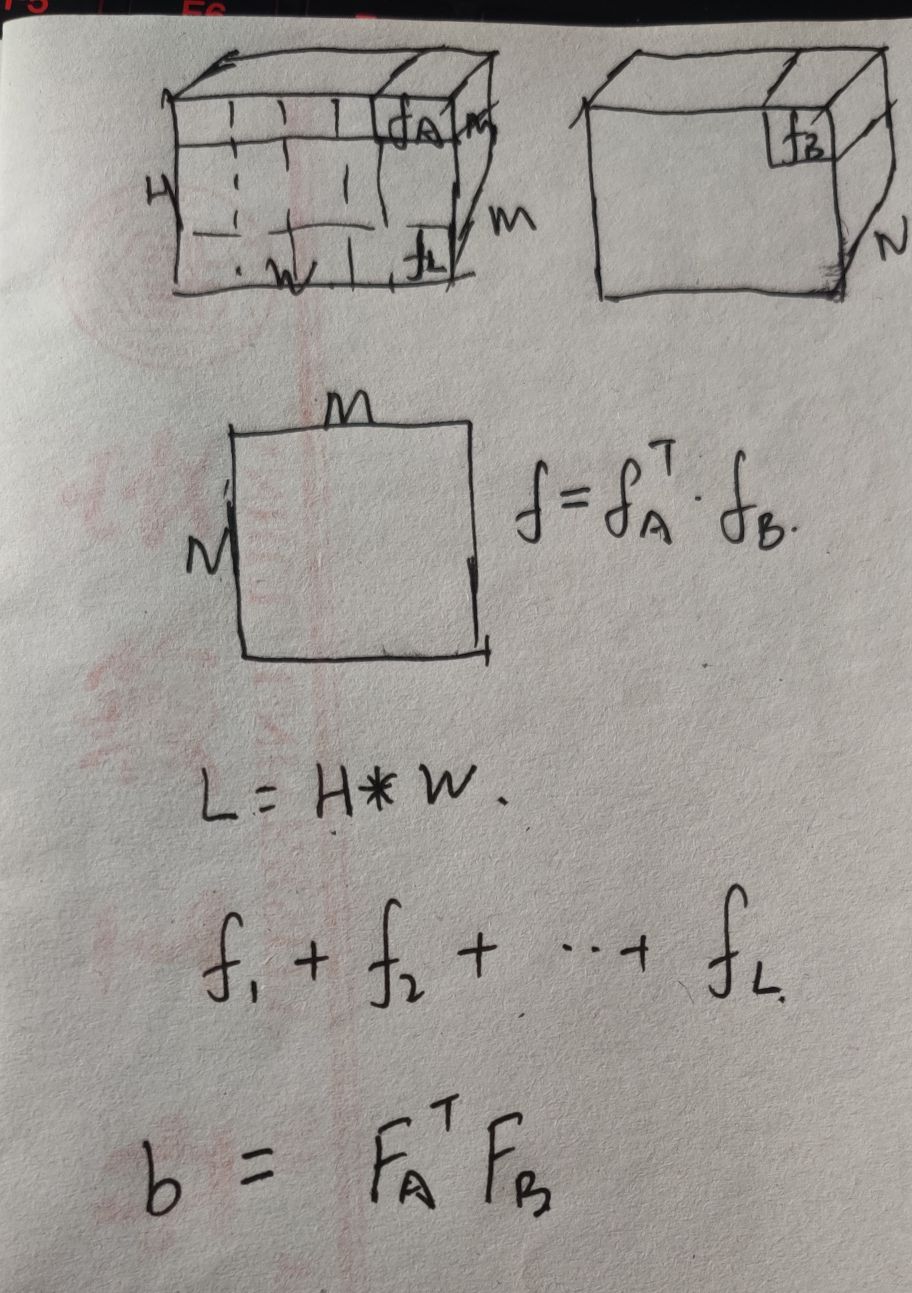 F6
f_A M
f_B
H
M
W f_L
N
M
N f = f_A^T · f_B.
L = H * W.
f_1 + f_2 + ··· + f_L.
b = F_A^T F_B